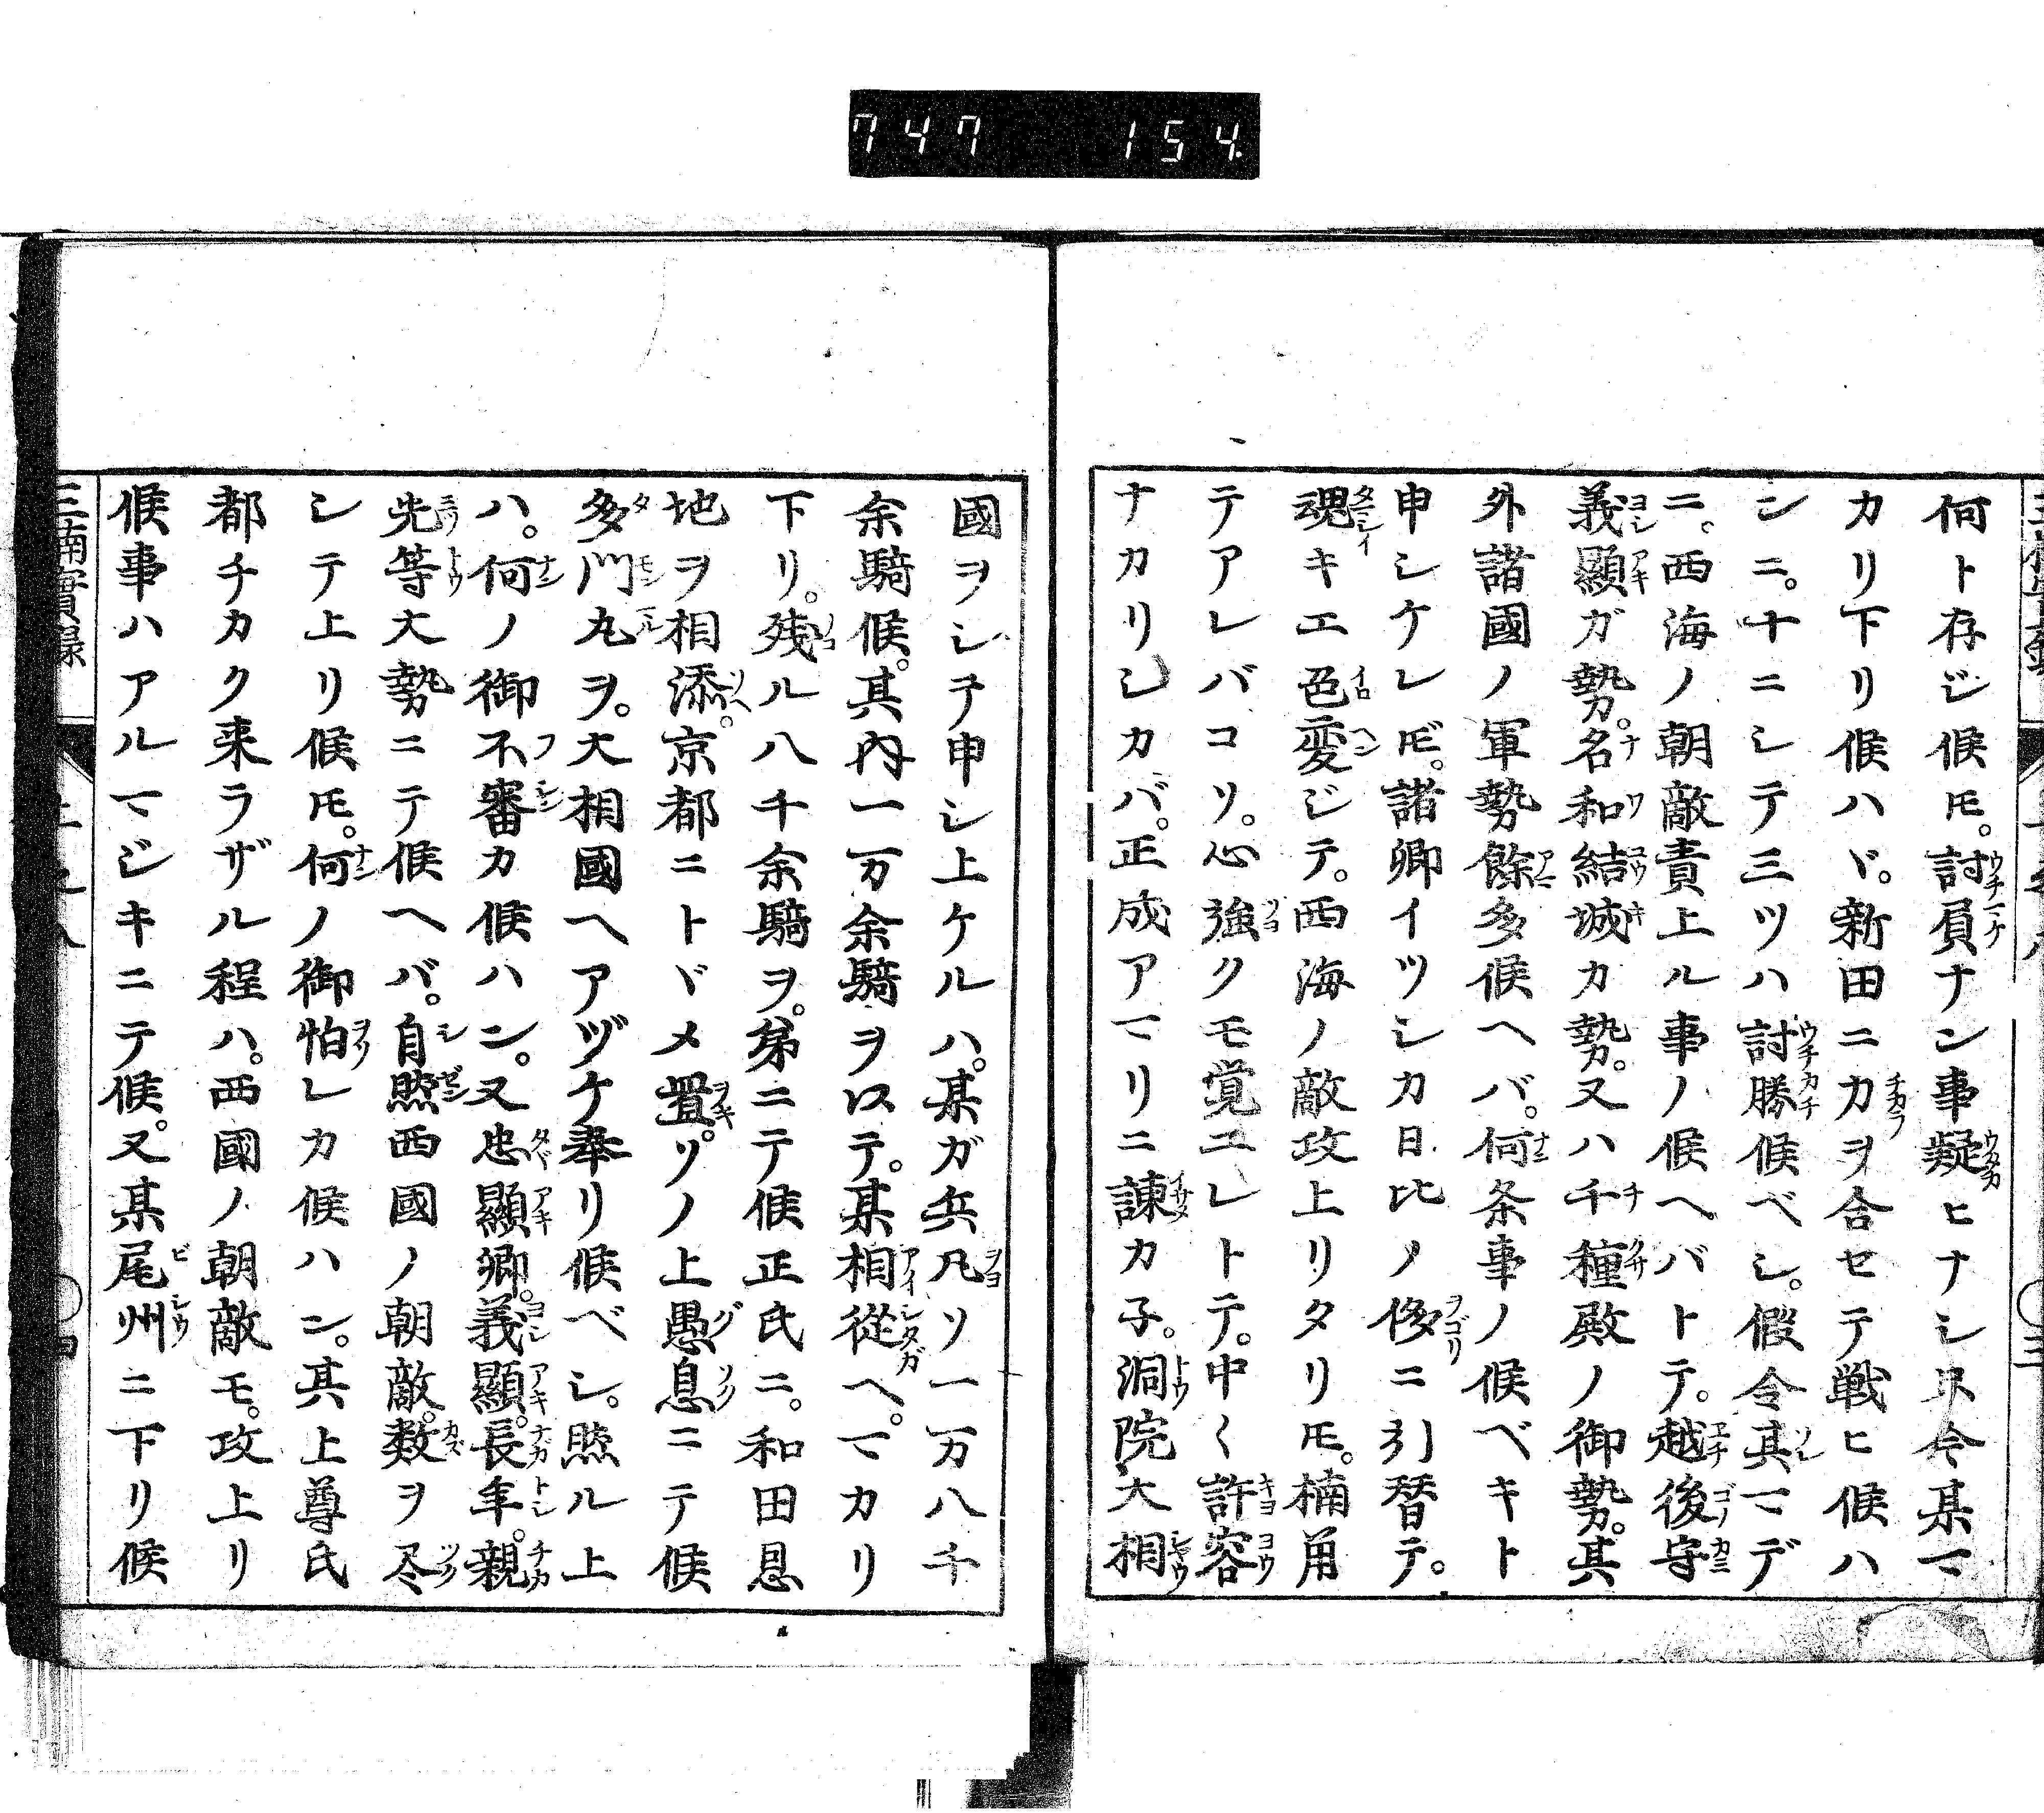 747 154
何ト存ジ候𪜈。討員ナン事疑ヒナシ只今某マ
カリ下リ候ハヾ。新田ニカヲ合セテ戦ヒ候ハ
ンニ。十ニシテ三ツハ討勝候ベシ。假令其マデ
ニ。西海ノ朝敵責上ル事ノ候ヘバトテ。越後守
義顯ガ勢。名和結城カ勢。又ハ千種殿ノ御勢。其
外諸國ノ軍勢餘多候ヘバ。何条事ノ候ベキト
申シケレ𪜈。諸卿イツシカ日比ノ侈ニ引替テ。
魂キエ色変ジテ。西海ノ敵攻上リタリ𪜈。楠角
テアレバコソ。心強クモ覚エレトテ。中〱許容
ナカリシカバ。正成アマリニ諫カ子。洞院大相
國ヲシテ申シ上ケルハ。某ガ兵凡ソ一万八千
余騎候。其内一万余騎ヲ以テ。某相從ヘ。マカリ
下リ。残ル八千余騎ヲ。弟ニテ候正氏ニ。和田恩
地ヲ相添。京都ニトヾメ置。ソノ上愚息ニテ候
多門丸ヲ。大相國ヘアヅケ奉リ候ベシ。然ル上
ハ。何ノ御不審カ候ハン。又忠顯卿。義顯。長年。親
光等大勢ニテ候ヘバ。自然西國ノ朝敵。数ヲ尽
シテ上リ候𪜈。何ノ御怕レカ候ハン。其上尊氏
都チカク来ラザル程ハ。西國ノ朝敵モ。攻上リ
候事ハアルマジキニテ候。又某尾州ニ下リ候
三楠實録